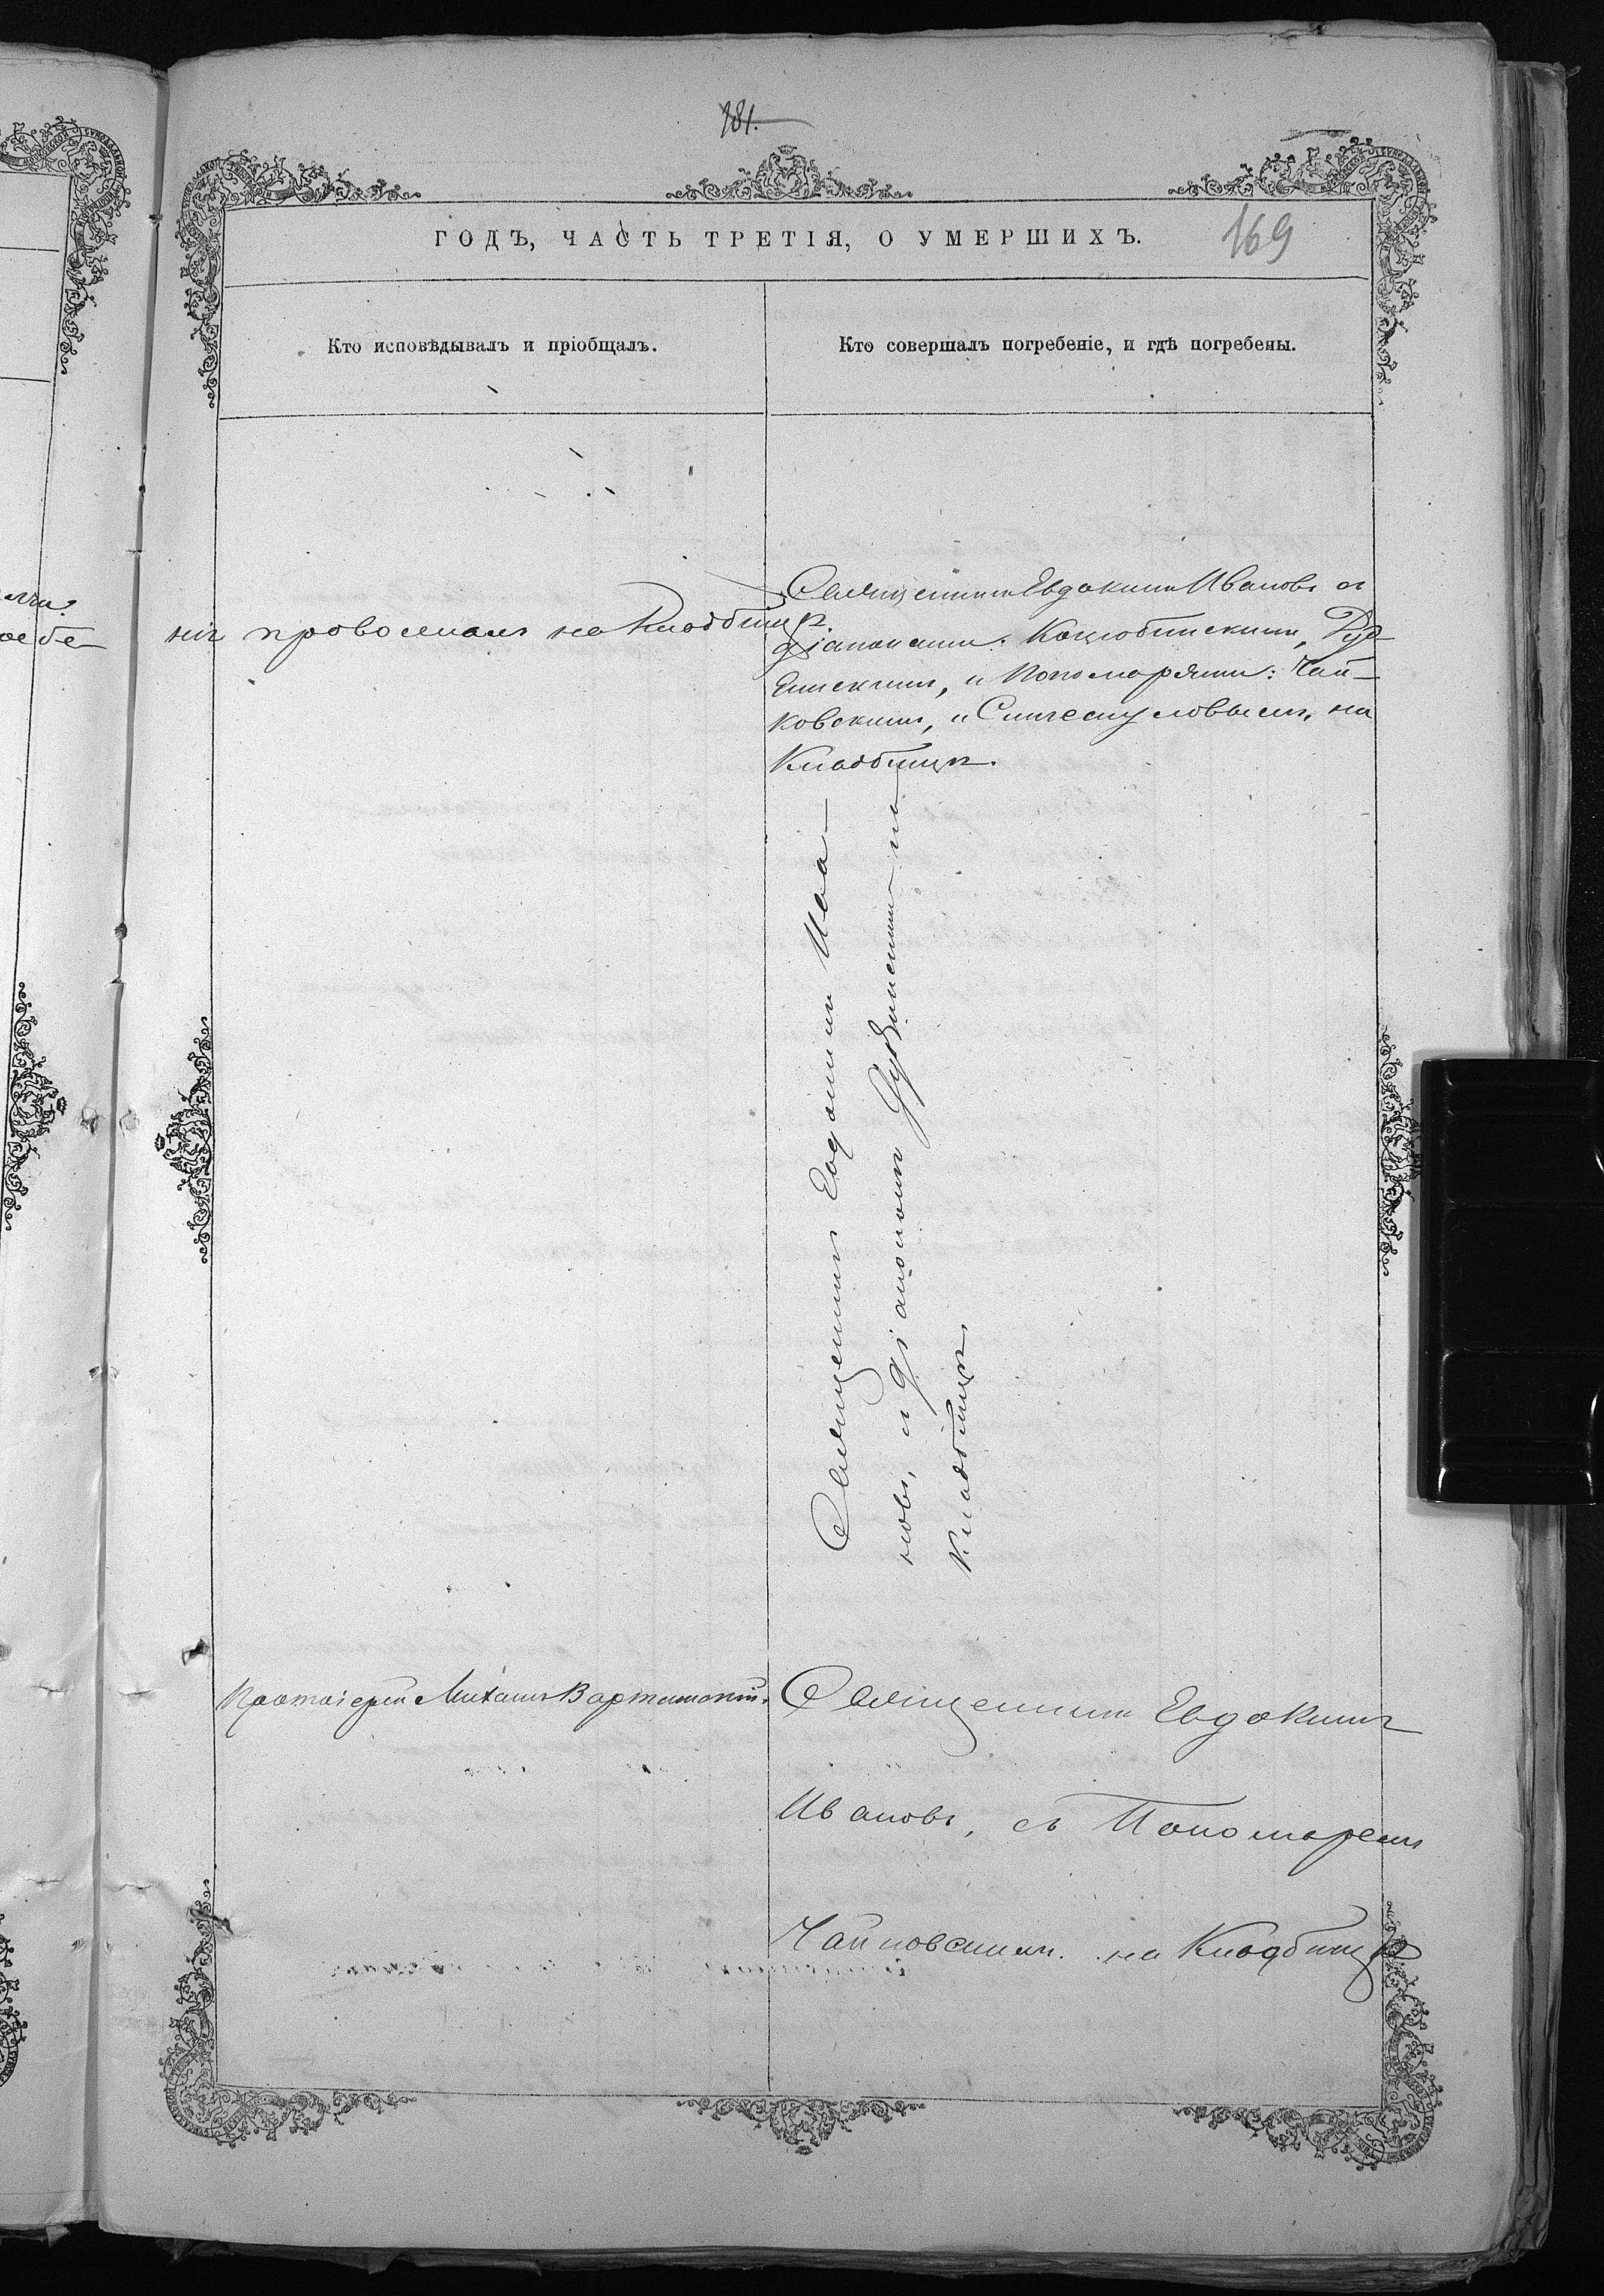 181.
ГОДЪ, ЧАСТЬ ТРЕТІЯ, О УМЕРШИХЪ.
169
Кто исповѣдывалъ и пріобщалъ.
Кто совершалъ погребеніе, и гдѣ погребены.
на Кладбищѣ.
Священникъ Евдокимъ Ивановъ съ
діаконами: Коцюбинскимъ, Руд-
зинскимъ, и Пономарями: Чай-
ковскимъ, и на
Кладбищѣ.
Священникъ Евдокимъ Ива-
новъ, и діаконъ Рудзинскій на
Кладбищѣ
Протоіерей Михаилъ Вартминскій.
Священникъ Евдокимъ
Ивановъ, съ Пономаремъ
Чайковскимъ. на Кладбищѣ